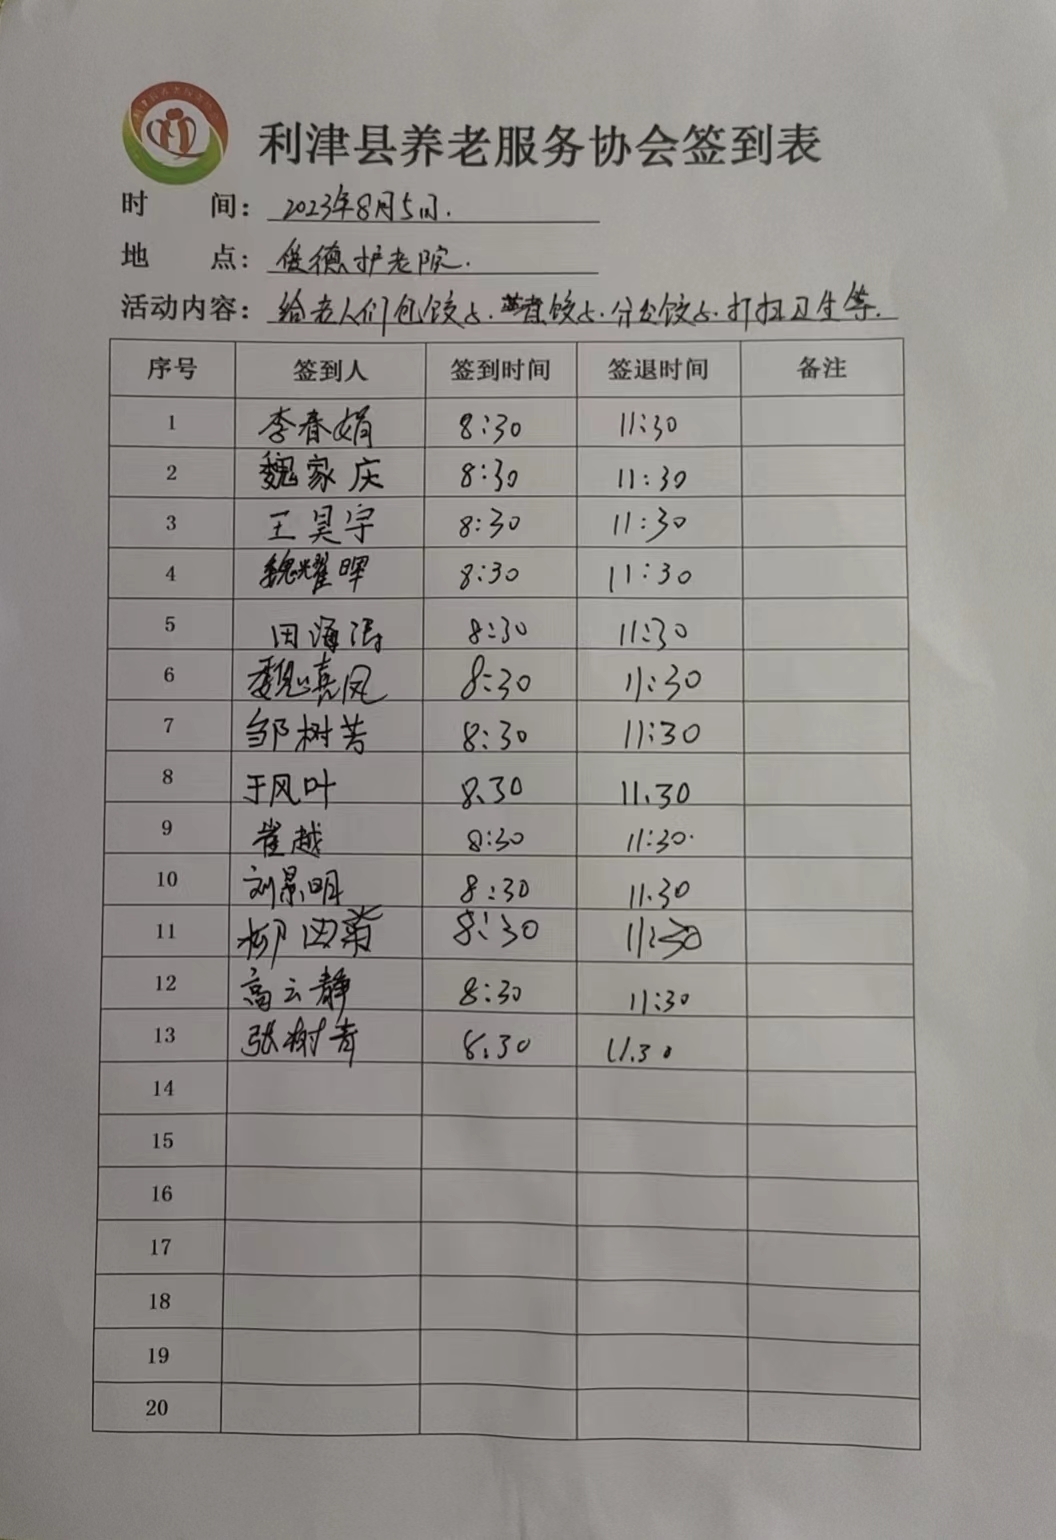 利津县养老服务协会签到表
时 间: 2023年8月5日.
地 点: 俊德护老院.
活动内容: 给老人们包饺子.煮饺子.分发饺子.打扫卫生等.
序号 签到人 签到时间 签退时间 备注
1 李春娟 8:30 11:30
2 魏家庆 8:30 11:30
3 王昊宇 8:30 11:30
4 魏耀晖 8:30 11:30
5 田海涛 8:30 11:30
6 魏嘉凤 8:30 11:30
7 邹树芳 8:30 11:30
8 于风叶 8.30 11.30
9 崔越 8:30 11:30.
10 刘景明 8:30 11.30
11 柳四菊 8:30 11:30
12 高云静 8:30 11:30
13 张树青 8.30 11.30
14
15
16
17
18
19
20